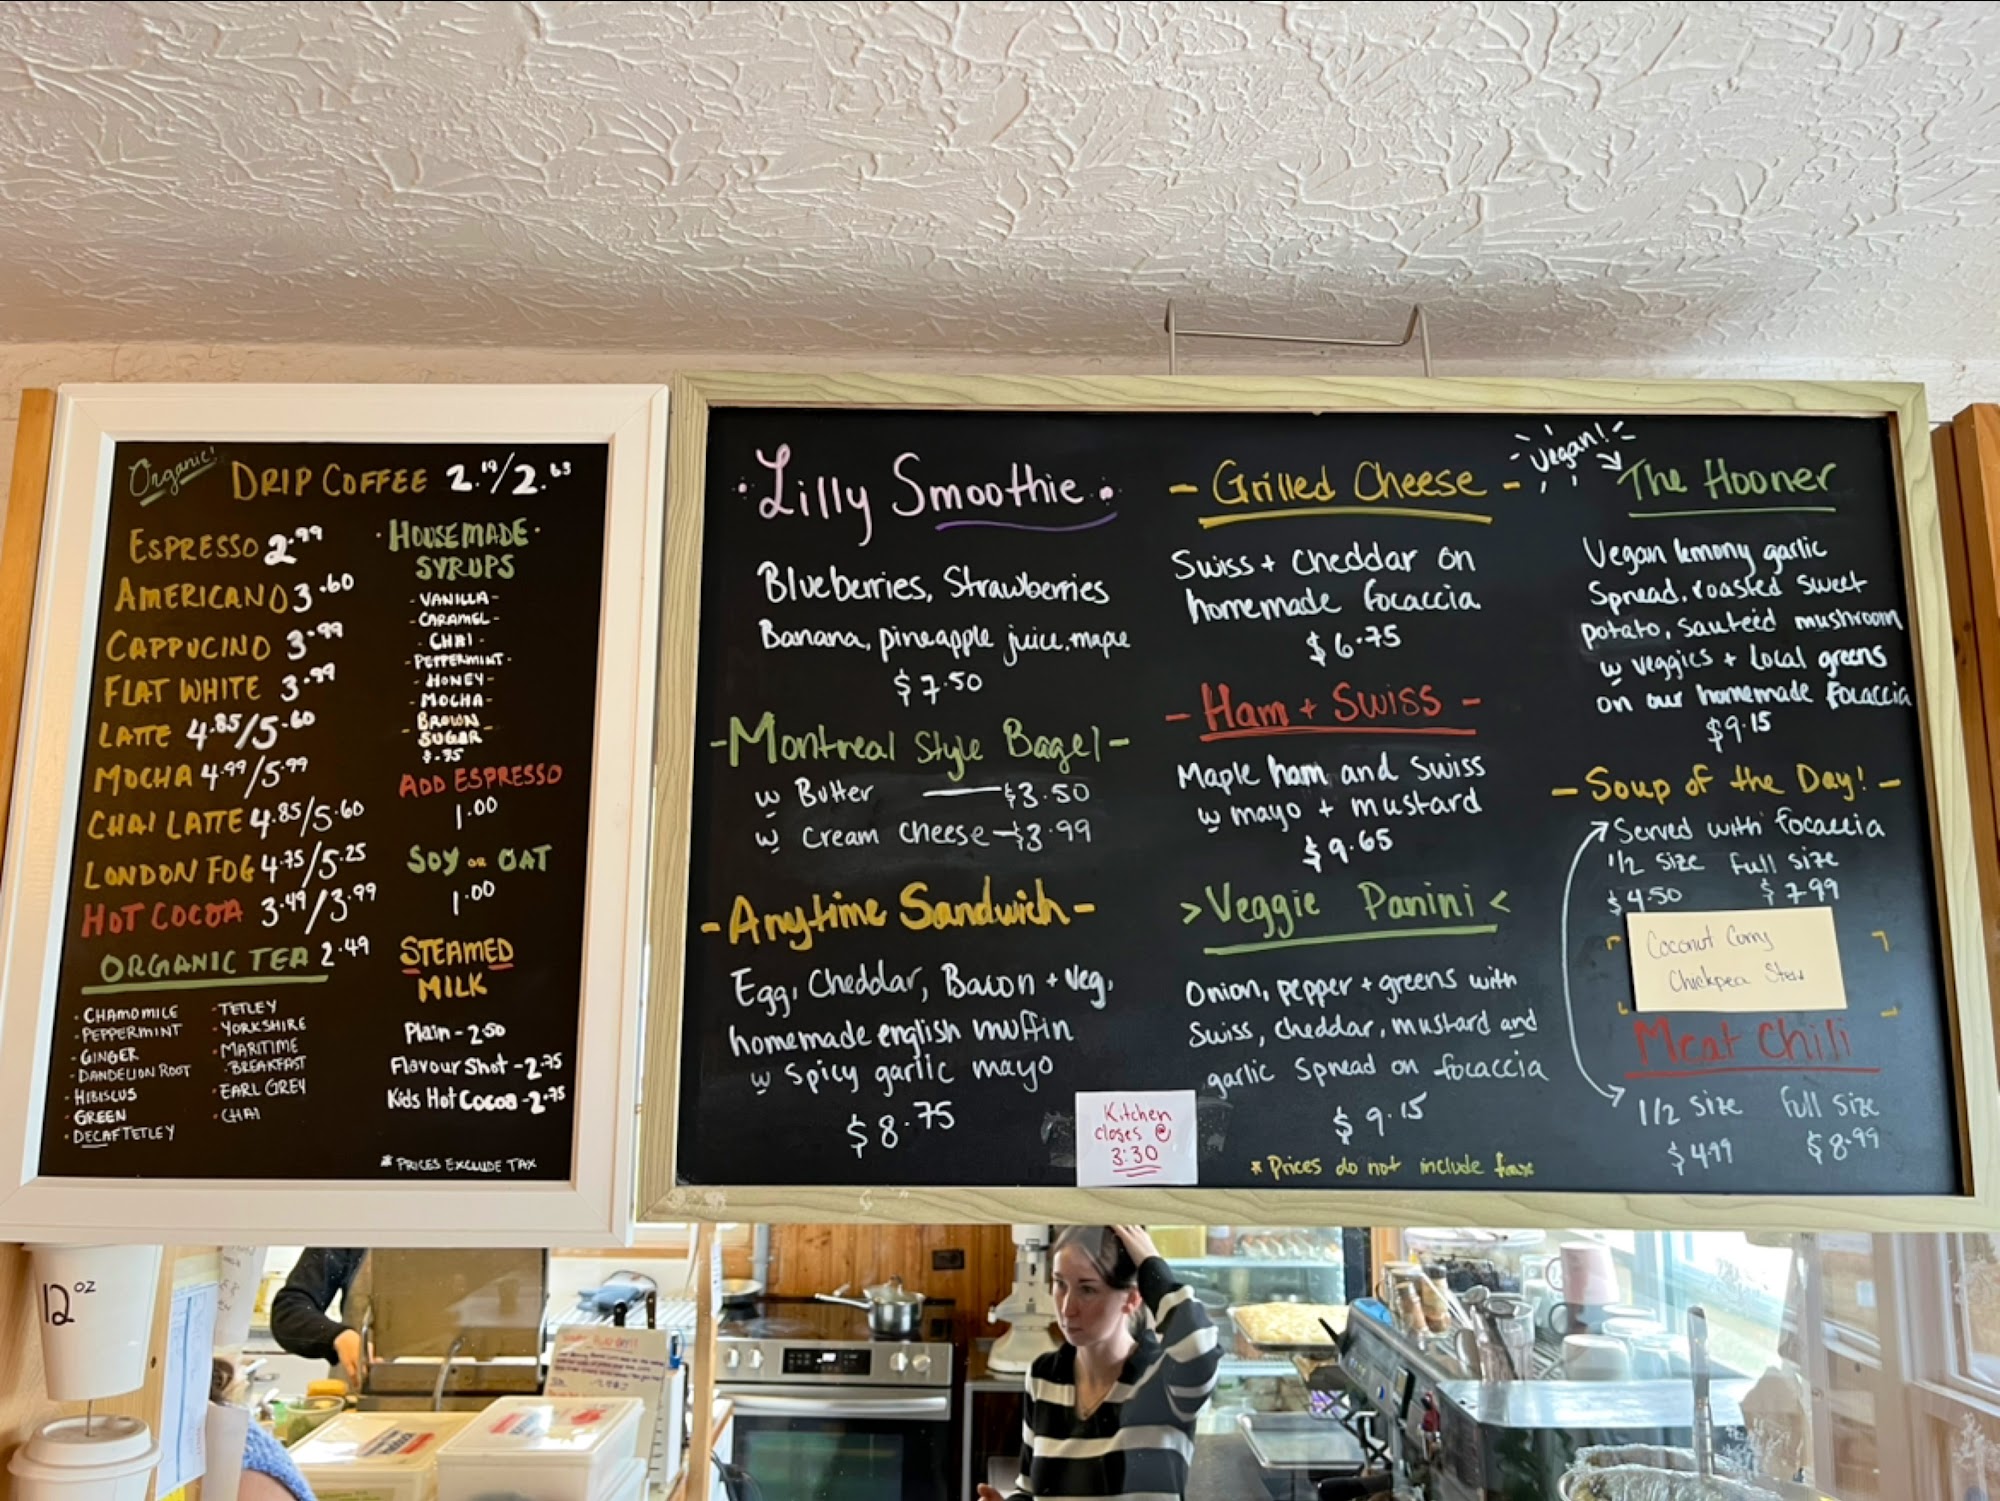 Organic!
DRIP COFFEE 2.19/2.63
ESPRESSO 2.99
AMERICANO 3.60
CAPPUCINO 3.99
FLAT WHITE 3.99
LATTE 4.85/5.60
MOCHA 4.99/5.99
CHAI LATTE 4.85/5.60
LONDON FOG 4.75/5.25
HOT COCOA 3.49/3.99
ORGANIC TEA 2.49
- CHAMOMILE
- PEPPERMINT
- GINGER
- DANDELION ROOT
- HIBISCUS
- GREEN
- DECAF TETLEY
- TETLEY
- YORKSHIRE
- MARITIME
BREAKFAST
- EARL GREY
- CHAI
· HOUSEMADE ·
SYRUPS
- VANILLA -
- CARAMEL -
- CHAI -
- PEPPERMINT -
- HONEY -
- MOCHA -
- BROWN -
SUGAR
$.75
ADD ESPRESSO
1.00
SOY OR OAT
1.00
STEAMED
MILK
Plain - 2.50
Flavour Shot - 2.75
Kids Hot Cocoa - 2.75
* PRICES EXCLUDE TAX
Lilly Smoothie
Blueberries, Strawberries
Banana, pineapple juice, maple
$7.50
- Montreal Style Bagel -
w Butter — $3.50
w Cream cheese - $3.99
- Anytime Sandwich -
Egg, Cheddar, Bacon + veg,
homemade english muffin
w spicy garlic mayo
$8.75
- Grilled Cheese -
Swiss + cheddar on
homemade focaccia
$6.75
- Ham + Swiss -
Maple ham and Swiss
w mayo + mustard
$9.65
> Veggie Panini <
Onion, pepper + greens with
Swiss, cheddar, mustard and
garlic spread on focaccia
$9.15
* Prices do not include
Kitchen
closes @
3:30
Vegan!
The Hooner
Vegan lemony garlic
Spread, roasted sweet
potato, sauteéd mushroom
w veggies + local greens
on our homemade focaccia
$9.15
- Soup of the Day! -
Served with focaccia
1/2 size full size
$4.50 $7.99
Coconut Curry
Chickpea Stew
Meat Chili
1/2 size full size
$4.99 $8.99
12 OZ